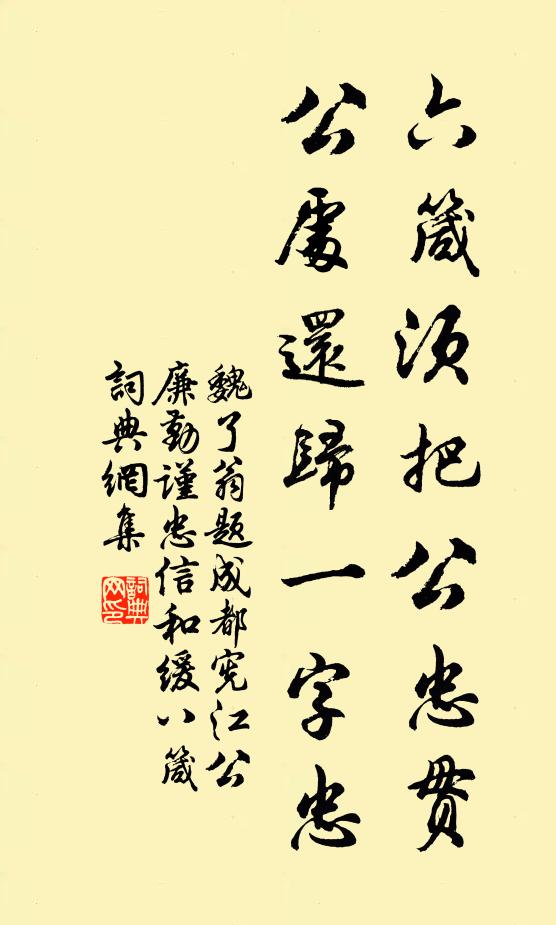 六箴須把公忠貫
公處還歸一字忠
魏了翁題成都憲江公
廉勤謹忠信和緩八箴
詞典網集
詞典